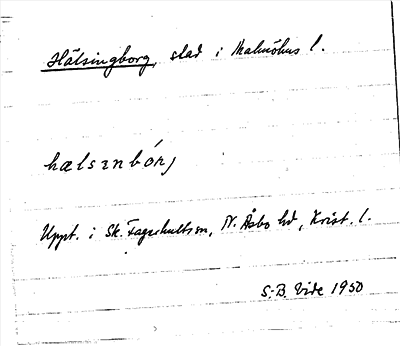 Hälsingborg, stad i Malmöhus l.
hælsɪnbórj
Uppt. i Sk. Fagerhults sn, N. Åsbo hd, Krist. l.
S.-B. Vide 1950